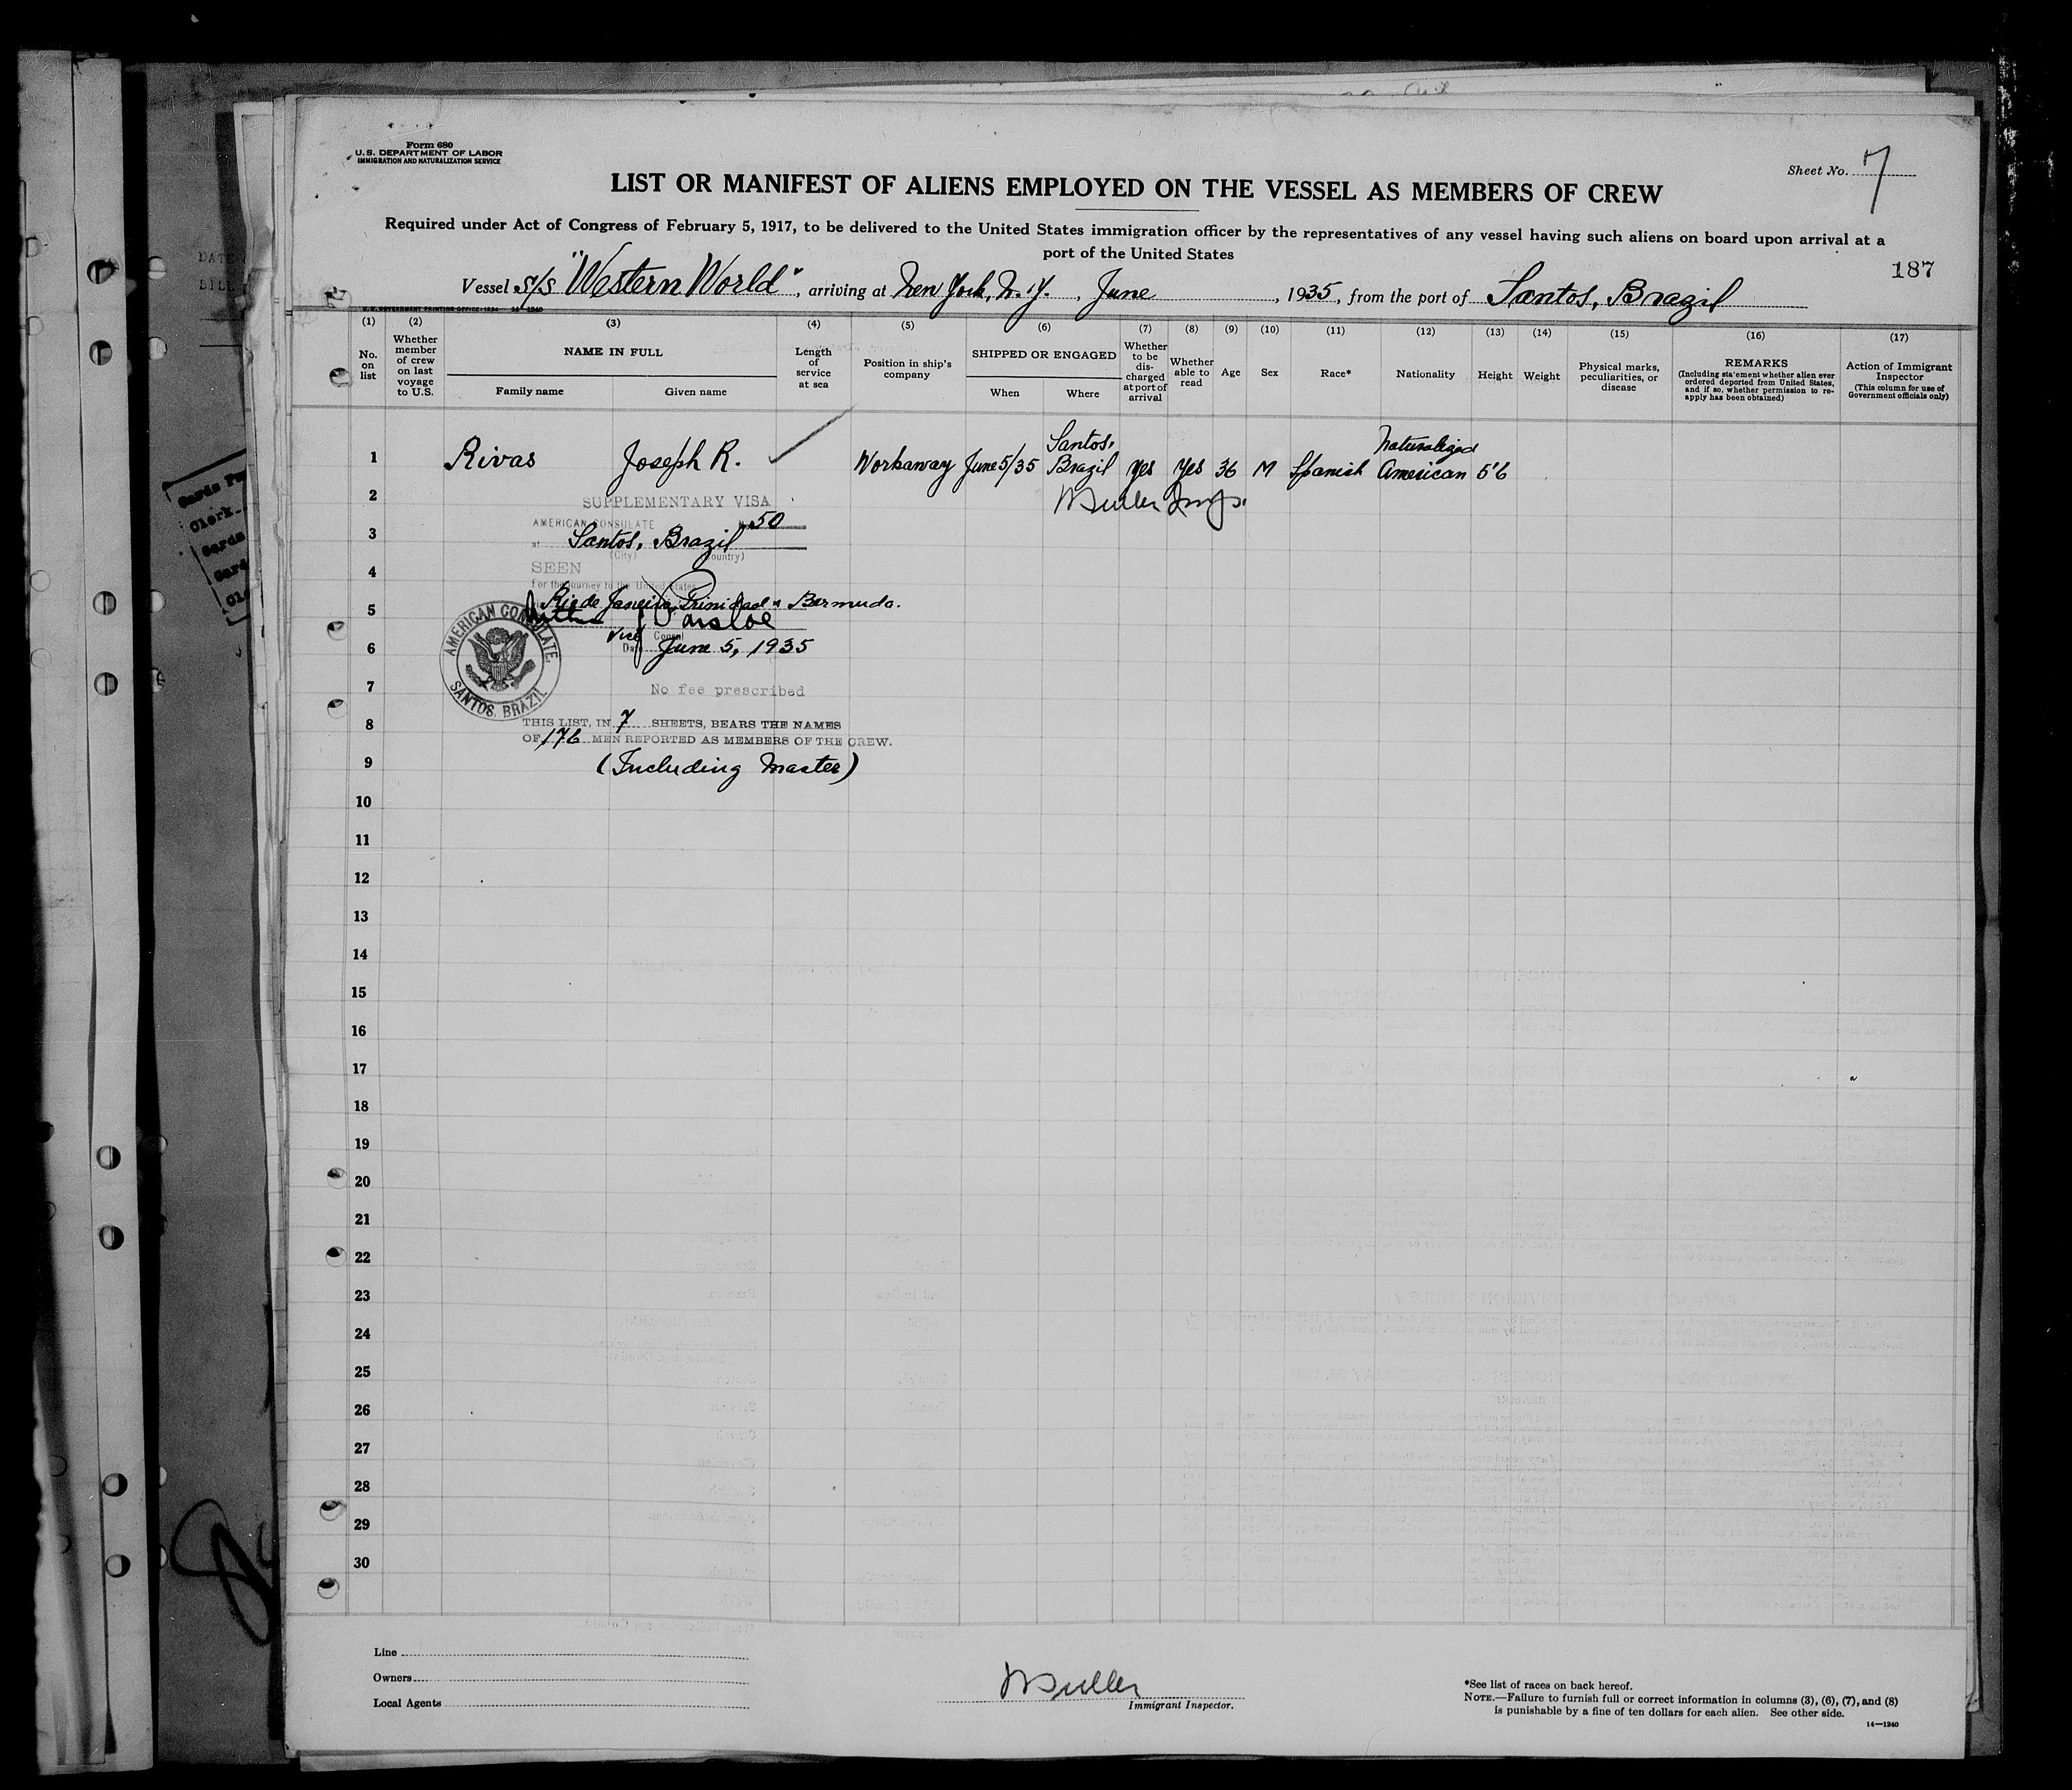 Form 680
U.S. DEPARTMENT OF LABOR
IMMIGRATION AND NATURALIZATION SERVICE
Sheet No. 7
LIST OR MANIFEST OF ALIENS EMPLOYED ON THE VESSEL AS MEMBERS OF CREW
Required under Act of Congress of February 5, 1917, to be delivered to the United States immigration officer by the representatives of any vessel having such aliens on board upon arrival at a
port of the United States
187
Vessel s/s "Western World", arriving at New York, N.Y., June, 1935, from the port of Santos, Brazil
U.S. GOVERNMENT PRINTING OFFICE: 1934 14—1240
(1) (2) (3) (4) (5) (6) (7) (8) (9) (10) (11) (12) (13) (14) (15) (16) (17)
No. on list
Whether member of crew on last voyage to U.S.
NAME IN FULL
Family name Given name
Length of service at sea
Position in ship's company
SHIPPED OR ENGAGED
When Where
Whether to be discharged at port of arrival
Whether able to read
Age
Sex
Race*
Nationality
Height
Weight
Physical marks, peculiarities, or disease
REMARKS
(Including statement whether alien ever ordered deported from United States, and if so, whether permission to re-apply has been obtained)
Action of Immigrant Inspector
(This column for use of Government officials only)
1 Rivas Joseph R. Workaway June 5/35 Santos, Brazil Yes Yes 36 M Spanish Naturalized American 5'6
2
SUPPLEMENTARY VISA
AMERICAN CONSULATE 50
3
at Santos, Brazil
(City) (Country)
4
SEEN
For the journey to the United States
5
Rio de Janeiro, Trinidad & Bermuda.
Parsloe
Vice Consul
6
Date June 5, 1935
AMERICAN CONSULATE
SANTOS, BRAZIL
7
No fee prescribed
8
THIS LIST, IN 7 SHEETS, BEARS THE NAMES
OF 176 MEN REPORTED AS MEMBERS OF THE CREW.
9
(Including Master)
10
11
12
13
14
15
16
17
18
19
20
21
22
23
24
25
26
27
28
29
30
Line
Owners
Local Agents
Immigrant Inspector.
*See list of races on back hereof.
NOTE.—Failure to furnish full or correct information in columns (3), (6), (7), and (8)
is punishable by a fine of ten dollars for each alien. See other side.
14—1240